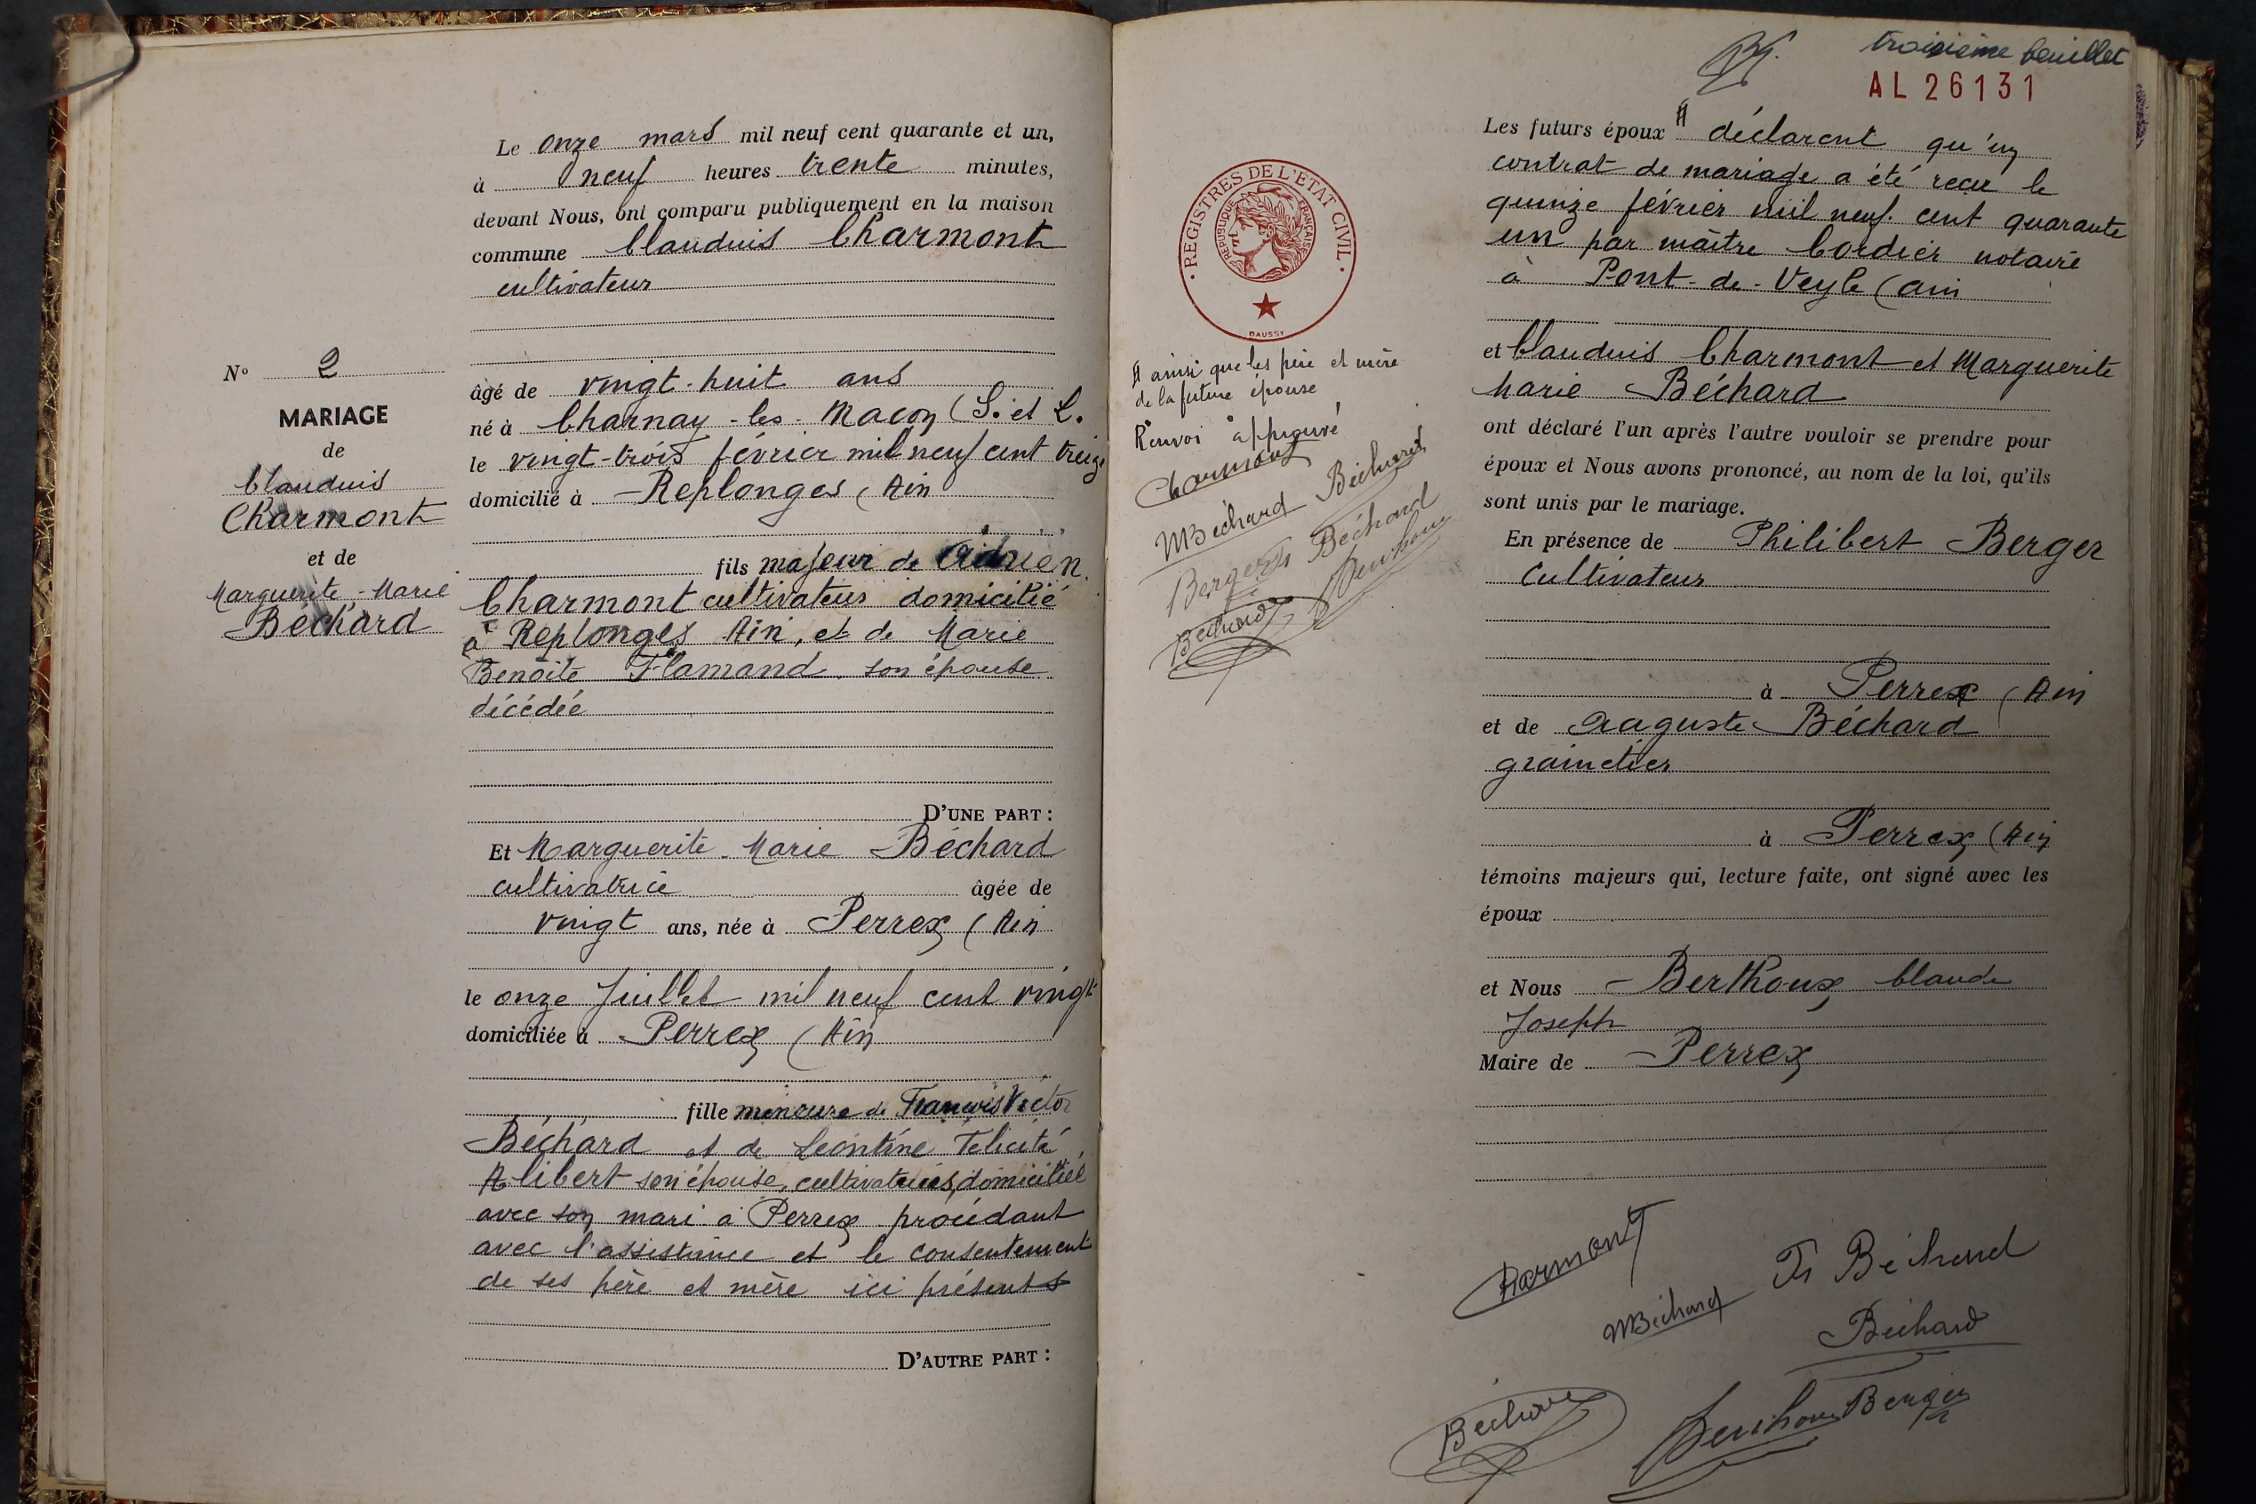 Le onze mars mil neuf cent quarante et un,
à neuf heures trente minutes,
devant Nous, ont comparu publiquement en la maison
commune Claudius Charmont
cultivateur
âgé de vingt-huit ans
né à Charnay-les-Macon (S. et L.
le vingt-trois février mil neuf cent treize
domicilié à Replonges (Ain
fils majeur de Adrien
Charmont cultivateur domicilié
à Replonges Ain, et de Marie
Benoite Flamand son épouse
décédée
D'UNE PART :
Et Marguerite-Marie Béchard
cultivatrice âgée de
vingt ans, née à Perrex (Ain
le onze Juillet mil neuf cent vingt
domiciliée à Perrex (Ain
fille mineure de François Victor
Béchard et de Leontine Félicité
Alibert son épouse, cultivatrices, domiciliée
avec son mari à Perrex procédant
avec l'assistance et le consentement
de ses père et mère ici présents
D'AUTRE PART :
No 2
MARIAGE
de
Claudius
Charmont
et de
Marguerite-Marie
Béchard
troisième feuillet
AL 26131
REGISTRES DE L'ETAT CIVIL
REPUBLIQUE FRANÇAISE
DAUSSY
ainsi que les père et mère
de la future épouse
Renvoi approuvé
Charmont
MBéchard Béchard
Berger Fs Béchard
Béchard Berthoux
Les futurs époux déclarent qu'un
contrat de mariage a été reçu le
quinze février mil neuf cent quarante
un par maître Cordier notaire
à Pont-de-Veyle (ain
et Claudius Charmont et Marguerite
Marie Béchard
ont déclaré l'un après l'autre vouloir se prendre pour
époux et Nous avons prononcé, au nom de la loi, qu'ils
sont unis par le mariage.
En présence de Philibert Berger
Cultivateur
à Perrex (Ain
et de Auguste Béchard
grainetier
à Perrex (Ain
témoins majeurs qui, lecture faite, ont signé avec les
époux
et Nous Berthoux Claude
Joseph
Maire de Perrex
Charmont
MBéchard Fs Béchard
Béchard
Béchard
Berthoux Berger